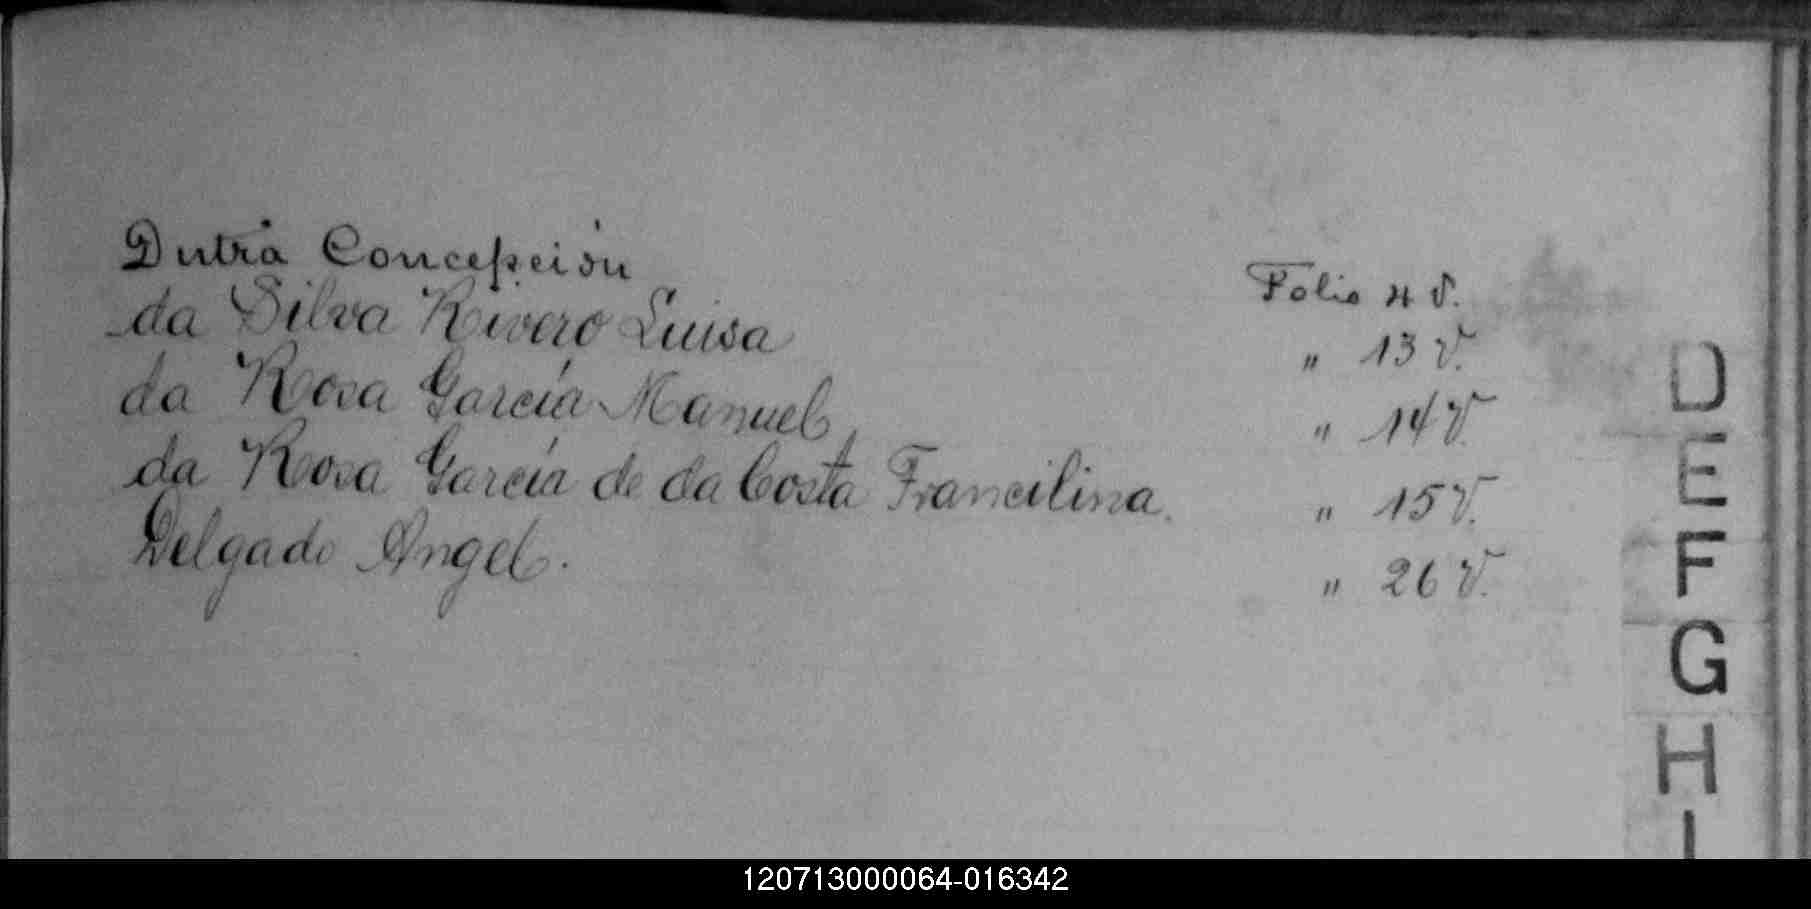 Dutra Concepción Folio 4 v.
da Silva Rivero Luisa " 13 v.
da Rosa García Manuel " 14 v.
da Rosa García de da Costa Francilina. " 15 v.
Delgado Angel. " 26 v.
D
E
F
G
H
I
120713000064-016342